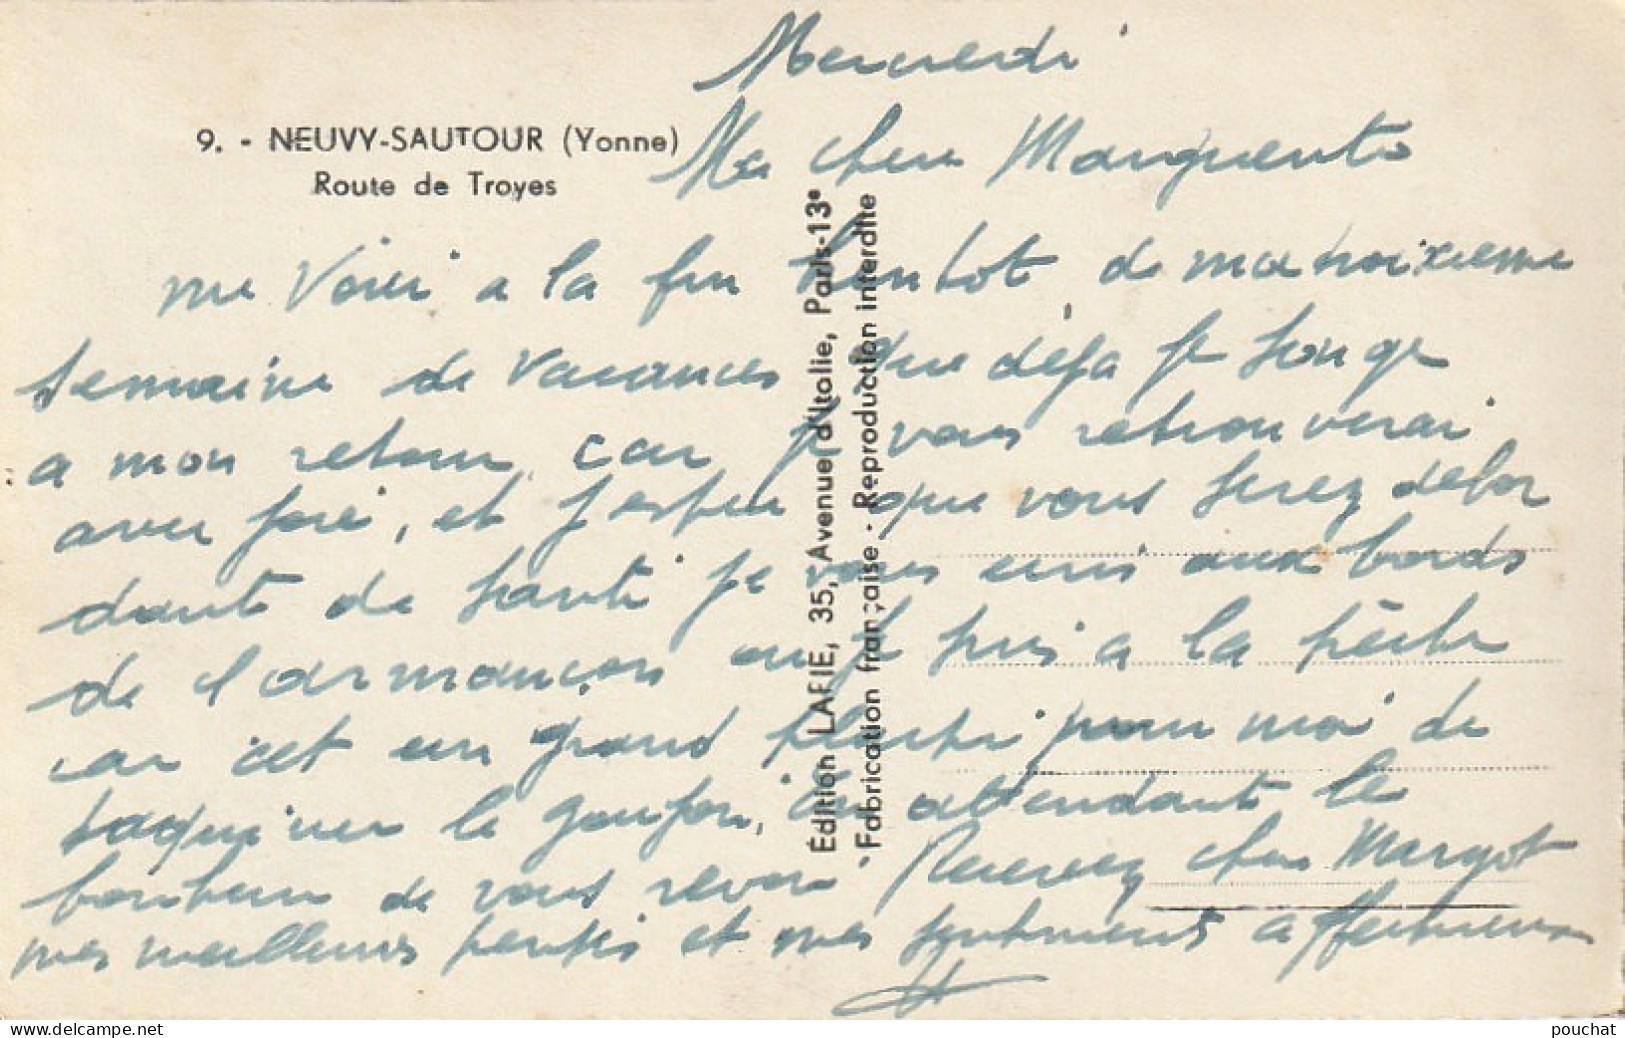 Mercredi
9. - NEUVY-SAUTOUR (Yonne)
Route de Troyes
Ma chere Marguerite
me voici a la fin bientot de ma troixieme
semaine de vacances que déja je songe
a mon retour, car je vous retrouverai
avec joie, et j'espere que vous serez debor
dante de santé je vous ecris aux bords
de l'armançon ou je suis a la pêche
car cet un grand plaisir pour moi de
taquiner le goujon, en attendant le
bonheur de vous revoir Recevez chere Margot
mes meilleures pensés et mes sentiments affectueux
Édition LAFIE, 35, Avenue d'Italie, Paris-13e
Fabrication française - Reproduction interdite
www.delcampe.net
pouchat